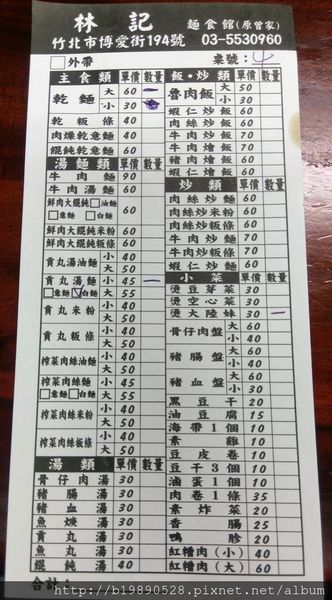 林記 麵食館(原曾家)
竹北市博愛街194號 03-5530960
□外帶 桌號: 4
主食類 單價 數量
乾麵 大 60 一
小 30
乾粄條 40
肉燥乾意麵 40
餛飩乾意麵 60
湯麵類 單價 數量
牛肉麵 90
牛肉湯麵 60
鮮肉大餛飩□油麵
□意麵 □白麵 60
鮮肉大餛飩米粉 60
鮮肉大餛飩粄條 60
貢丸湯油麵 小 40
大 50
貢丸湯麵 小 45 一
□意麵 ☑白麵 大 55
貢丸米粉 小 40
大 50
貢丸粄條 小 40
大 50
榨菜肉絲油麵 小 40
大 50
榨菜肉絲麵 小 45
□意麵 □白麵 大 55
榨菜肉絲米粉 小 40
大 50
榨菜肉絲粄條 小 40
大 50
湯類 單價 數量
骨仔肉湯 30
豬腸湯 30
豬血湯 30
魚焿湯 30
貢丸湯 30
魚丸湯 30
餛飩湯 30
合計:
飯・炒類 單價 數量
魯肉飯 大 50
小 30
蝦仁炒飯 60
肉絲炒飯 60
牛肉炒飯 70
牛肉燴飯 70
豬肉燴飯 60
蝦仁燴飯 60
炒類 單價 數量
肉絲炒麵 60
肉絲炒米粉 60
肉絲炒粄條 60
牛肉炒麵 70
牛肉炒粄條 70
蝦仁炒麵 60
小菜 單價 數量
燙豆芽菜 30
燙空心菜 30
燙大陸妹 30 一
骨仔肉盤 大 60
小 40
豬腸盤 大 60
小 40
豬血盤 大 60
小 30
黑豆干 20
油豆腐 15
海帶1個 10
素雞 10
豆皮卷 10
豆干3個 10
滷蛋1個 10
肉卷1條 35
素炸菜 20
香腸 25
鴨胗 20
紅糟肉(小) 40
紅糟肉(大) 60
http://b19890528.pixnet.net/album